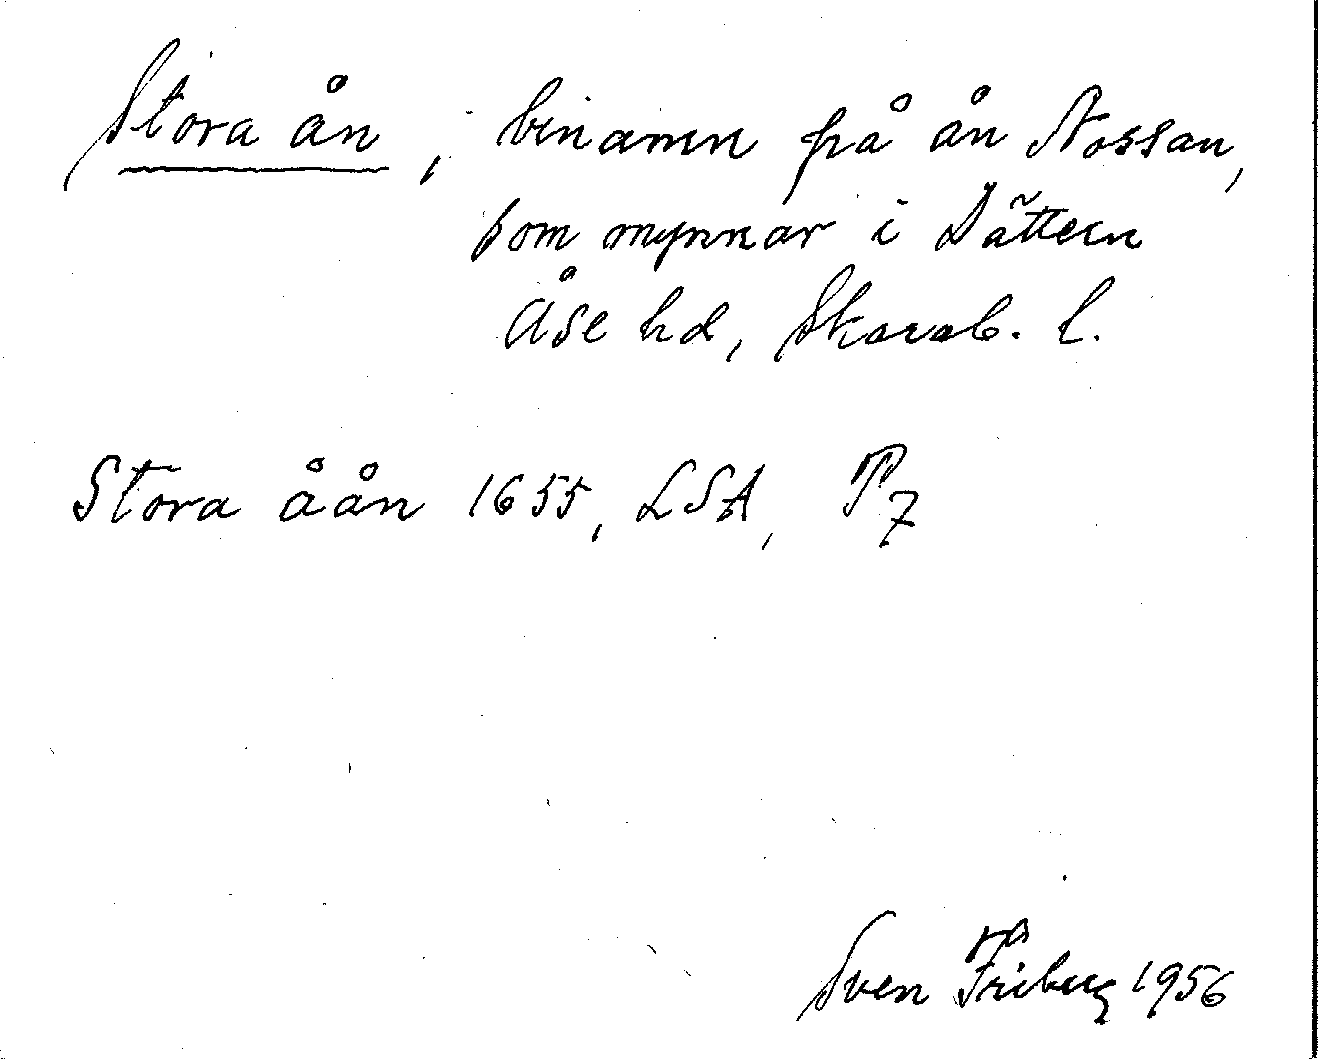 Stora ån, binamn på ån Nossan,
som mynnar i Dättern
Åse hd, Skarab. l.
Stora åån 1655, LSA, P7
Sven Friberg 1956